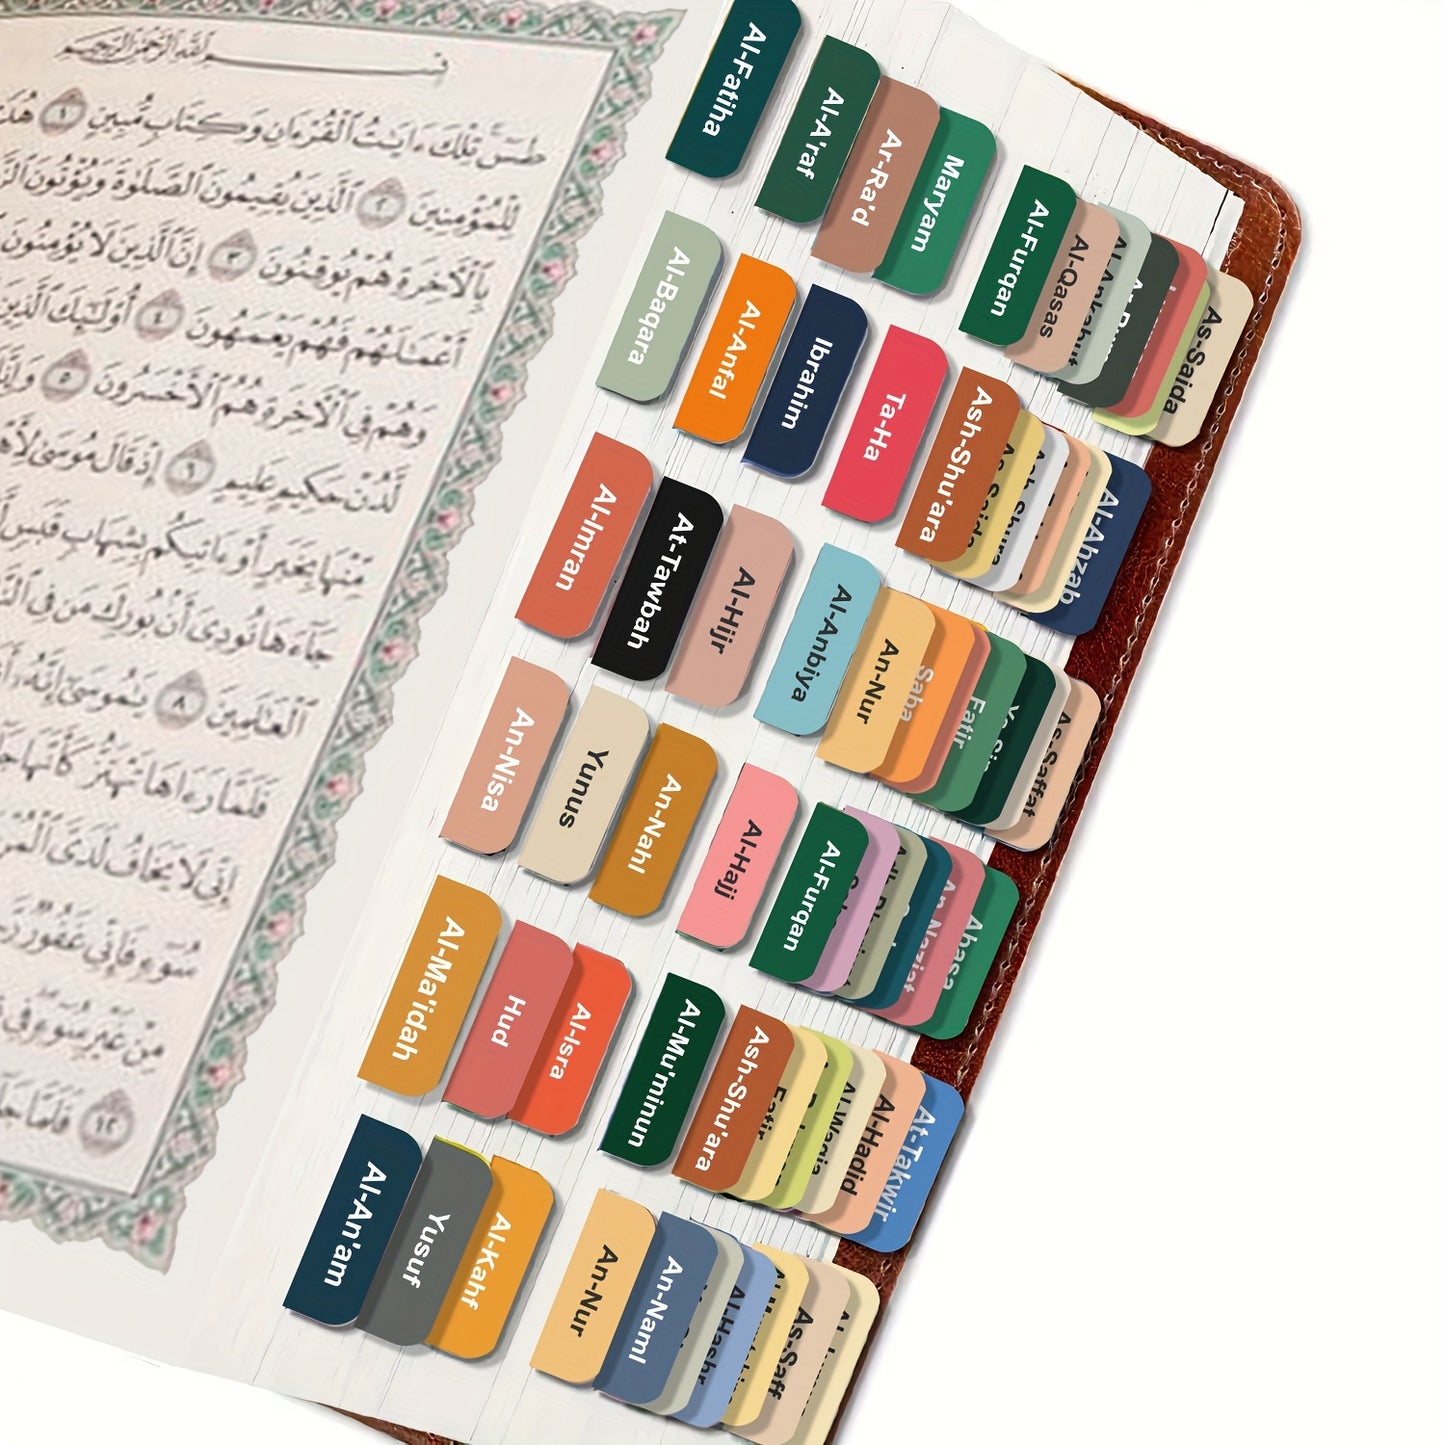 بِسْمِ ٱللَّهِ ٱلرَّحْمَٰنِ ٱلرَّحِيمِ
طسٓ تِلْكَ ءَايَٰتُ ٱلْقُرْءَانِ وَكِتَابٍ مُّبِينٍ ١ هُدًى
لِلْمُؤْمِنِينَ ٢ ٱلَّذِينَ يُقِيمُونَ ٱلصَّلَوٰةَ وَيُؤْتُونَ
بِٱلْءَاخِرَةِ هُمْ يُوقِنُونَ ٣ إِنَّ ٱلَّذِينَ لَا يُؤْمِنُونَ
أَعْمَٰلَهُمْ فَهُمْ يَعْمَهُونَ ٤ أُو۟لَٰٓئِكَ ٱلَّذِينَ
وَهُمْ فِي ٱلْءَاخِرَةِ هُمُ ٱلْأَخْسَرُونَ ٥ وَإِنَّكَ
لَّدُنْ حَكِيمٍ عَلِيمٍ ٦ إِذْ قَالَ مُوسَىٰ لِأَهْلِهِ
مِّنْهَا بِخَبَرٍ أَوْ ءَاتِيكُم بِشِهَابٍ قَبَسٍ
جَآءَهَا نُودِيَ أَنۢ بُورِكَ مَن فِي ٱلنَّارِ
ٱلْعَٰلَمِينَ ٨ يَٰمُوسَىٰٓ إِنَّهُۥٓ
فَلَمَّا رَءَاهَا تَهْتَزُّ كَأَنَّهَا
إِنِّي لَا يَخَافُ لَدَيَّ
سُوٓءٍ فَإِنِّي غَفُورٌ
مِنْ غَيْرِ سُوٓءٍ فِي
١٢ فَلَمَّا
Al-Fatiha
Al-A'raf
Ar-Ra'd
Maryam
Al-Furqan
Al-Qasas
Al-Ankabut
As-Sajda
Al-Baqara
Al-Anfal
Ibrahim
Ta-Ha
Ash-Shu'ara
Al-Ahzab
Al-Imran
At-Tawbah
Al-Hijr
Al-Anbiya
An-Nur
Saba
Fatir
As-Saffat
An-Nisa
Yunus
An-Nahl
Al-Hajj
Al-Furqan
An-Naziat
Abasa
Al-Ma'idah
Hud
Al-Isra
Al-Mu'minun
Ash-Shu'ara
Fatir
Al-Waqia
Al-Hadid
At-Takwir
Al-An'am
Yusuf
Al-Kahf
An-Nur
An-Naml
Al-Hashr
As-Saff